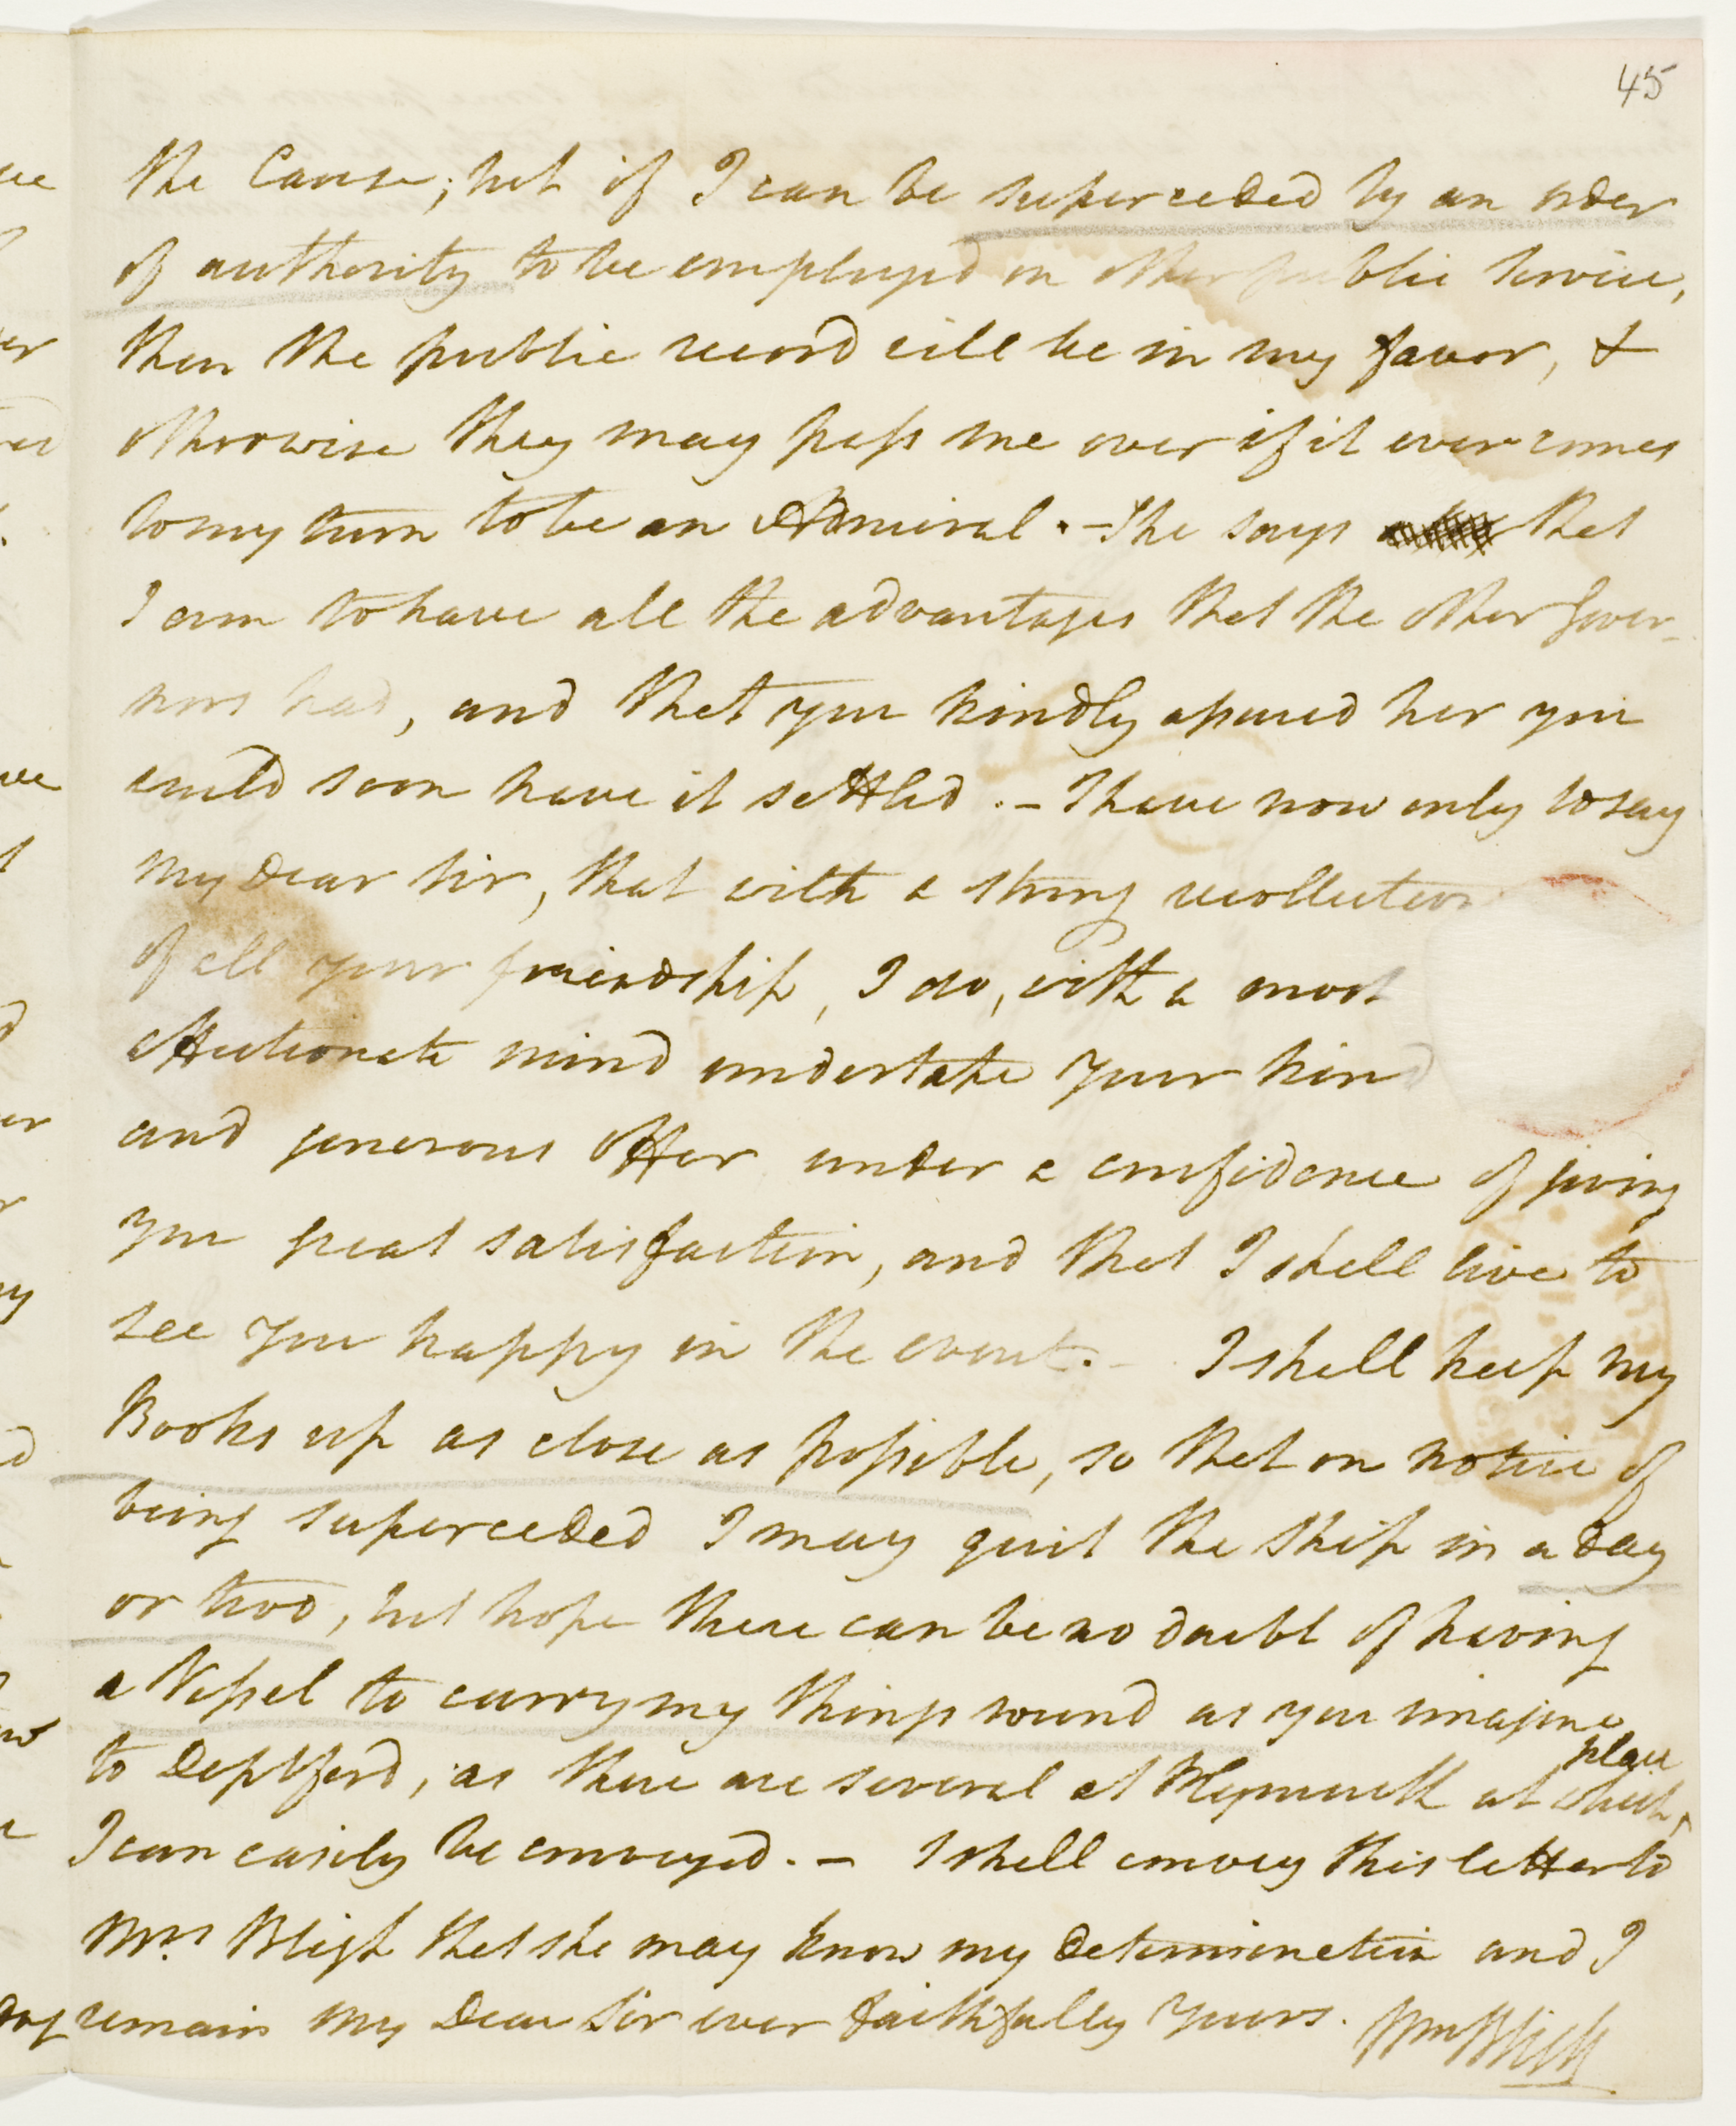 45
the Cause; but if I can be superceded by an order
of authority to be employed on other public service,
then the public record will be in my favor, &
otherwise they may pass me over if it ever comes
to my turn to be an Admiral. - She says that
I am to have all the advantages that the other Gover-
nors had, and that you kindly assured her you
could soon have it settled. - I have now only to say
my Dear Sir, that with a strong recollection
of all your friendship, I do, with a most
affectionate mind undertake your kind
and generous offer under a confidence of giving
you great satisfaction, and that I shall live to
see you happy in the event. - I shall keep my
Books up as close as possible, so that on notice of
being superceded I may quit the ship in a day
or two, but hope there can be no doubt of having
a Vessel to carry my things round as you imagine
to Deptford, as there are several at Plymouth at which place
I can easily be conveyed. - I shall convey this letter to
Mrs Bligh that she may know my determination and I
remain my Dear Sir ever faithfully yours. Wm Bligh